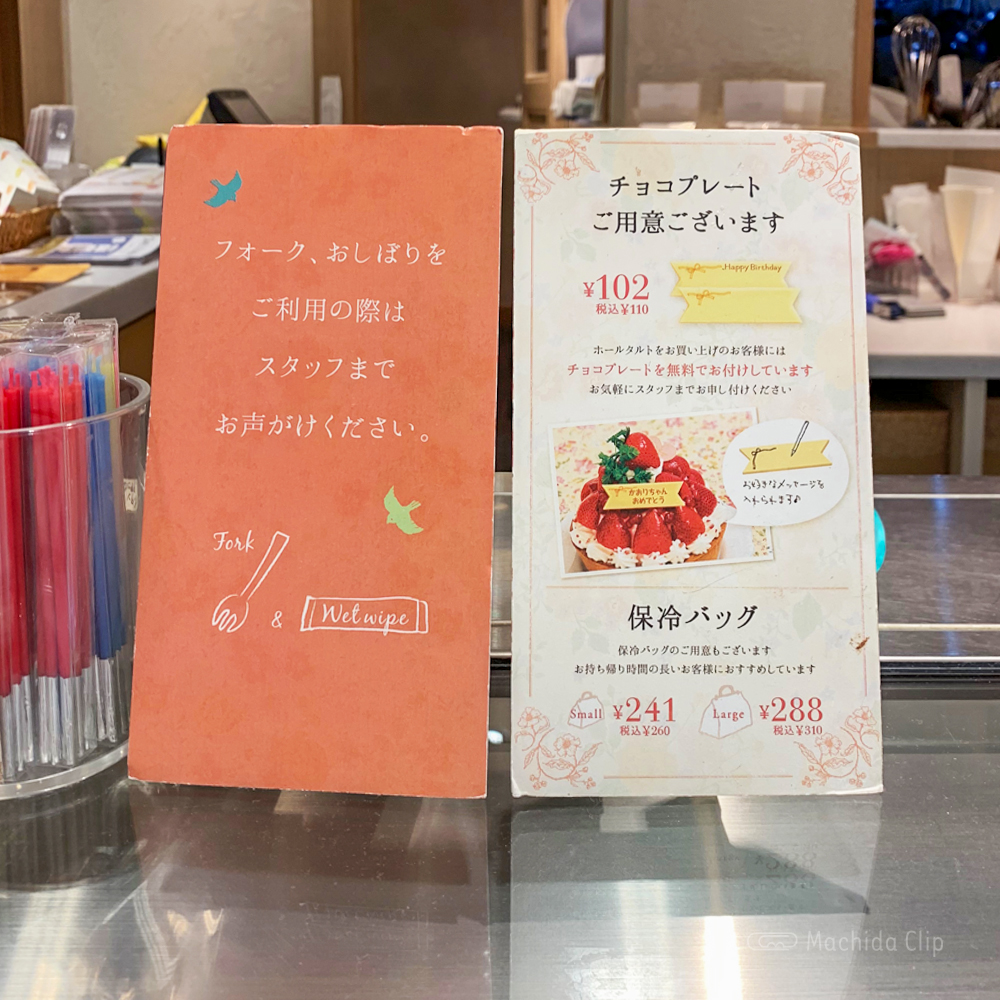 フォーク、おしぼりを
ご利用の際は
スタッフまで
お声がけください。
Fork
&
Wet wipe
チョコプレート
ご用意ございます
Happy Birthday
¥102
税込¥110
ホールタルトをお買い上げのお客様には
チョコプレートを無料でお付けしています
お気軽にスタッフまでお申し付けください
かおりちゃん
おめでとう
お好きなメッセージを
入れられます♪
保冷バッグ
保冷バッグのご用意もございます
お持ち帰り時間の長いお客様におすすめしています
Small ¥241
税込¥260
Large ¥288
税込¥310
Machida Clip